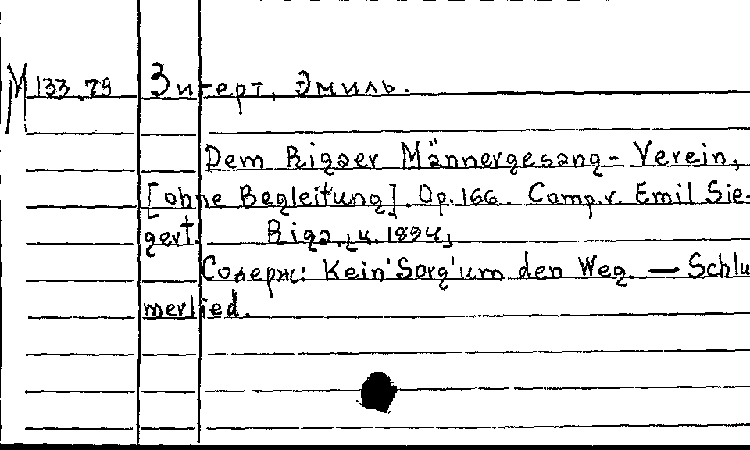 М 133.79 Зигерт, Эмиль.
Dem Rigaer Männergesang-Verein,
[ohne Begleitung]. Op. 166. Comp. v. Emil Sie-
gert. Riga, [u. 1894]
Содерж: Kein' Sorg' um den Weg. — Schlu
merlied.